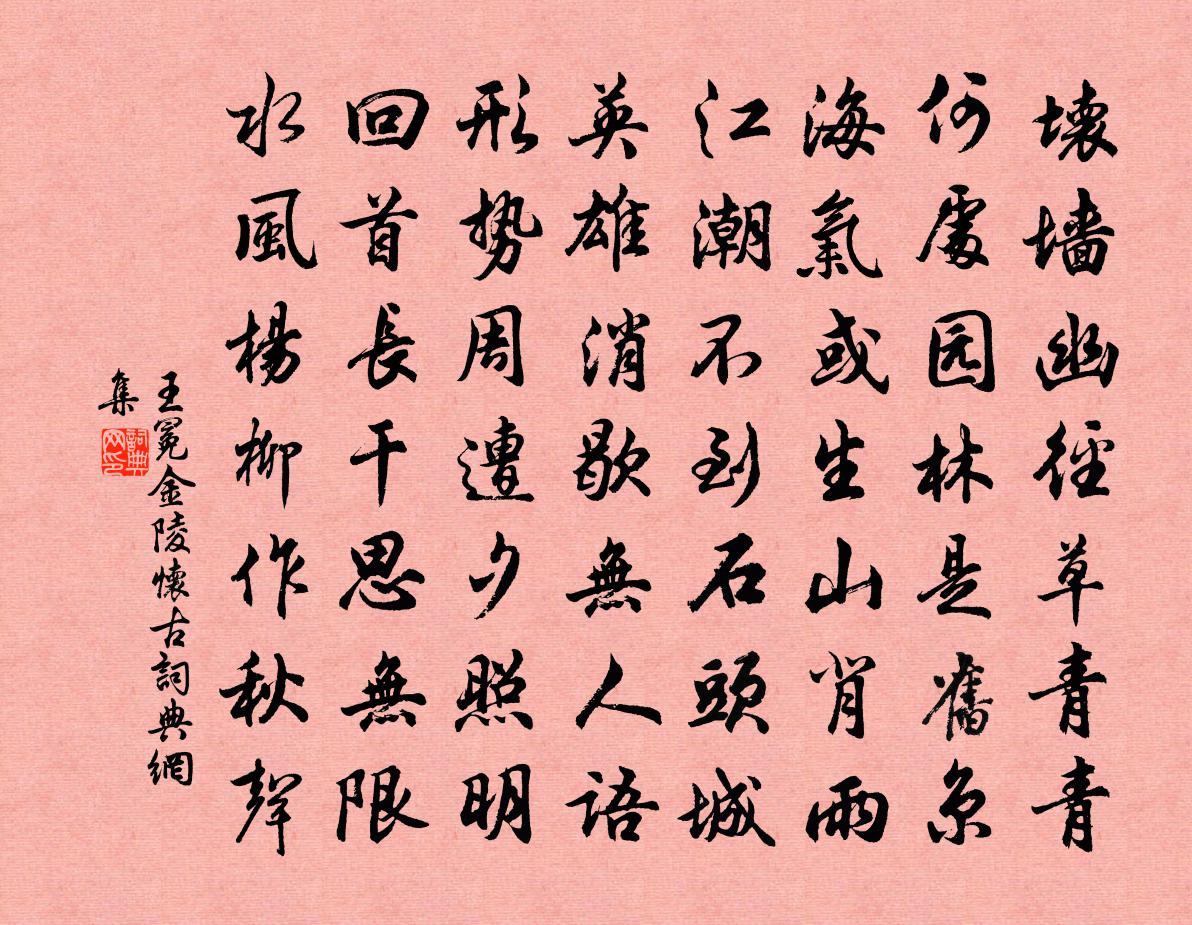 壞墻幽徑草青青
何處园林是舊京
海氣或生山背雨
江潮不到石頭城
英雄消歇無人語
形勢周遭夕照明
回首長干思無限
水風楊柳作秋聲
王冕金陵懷古詞典網
集
詞典
网印